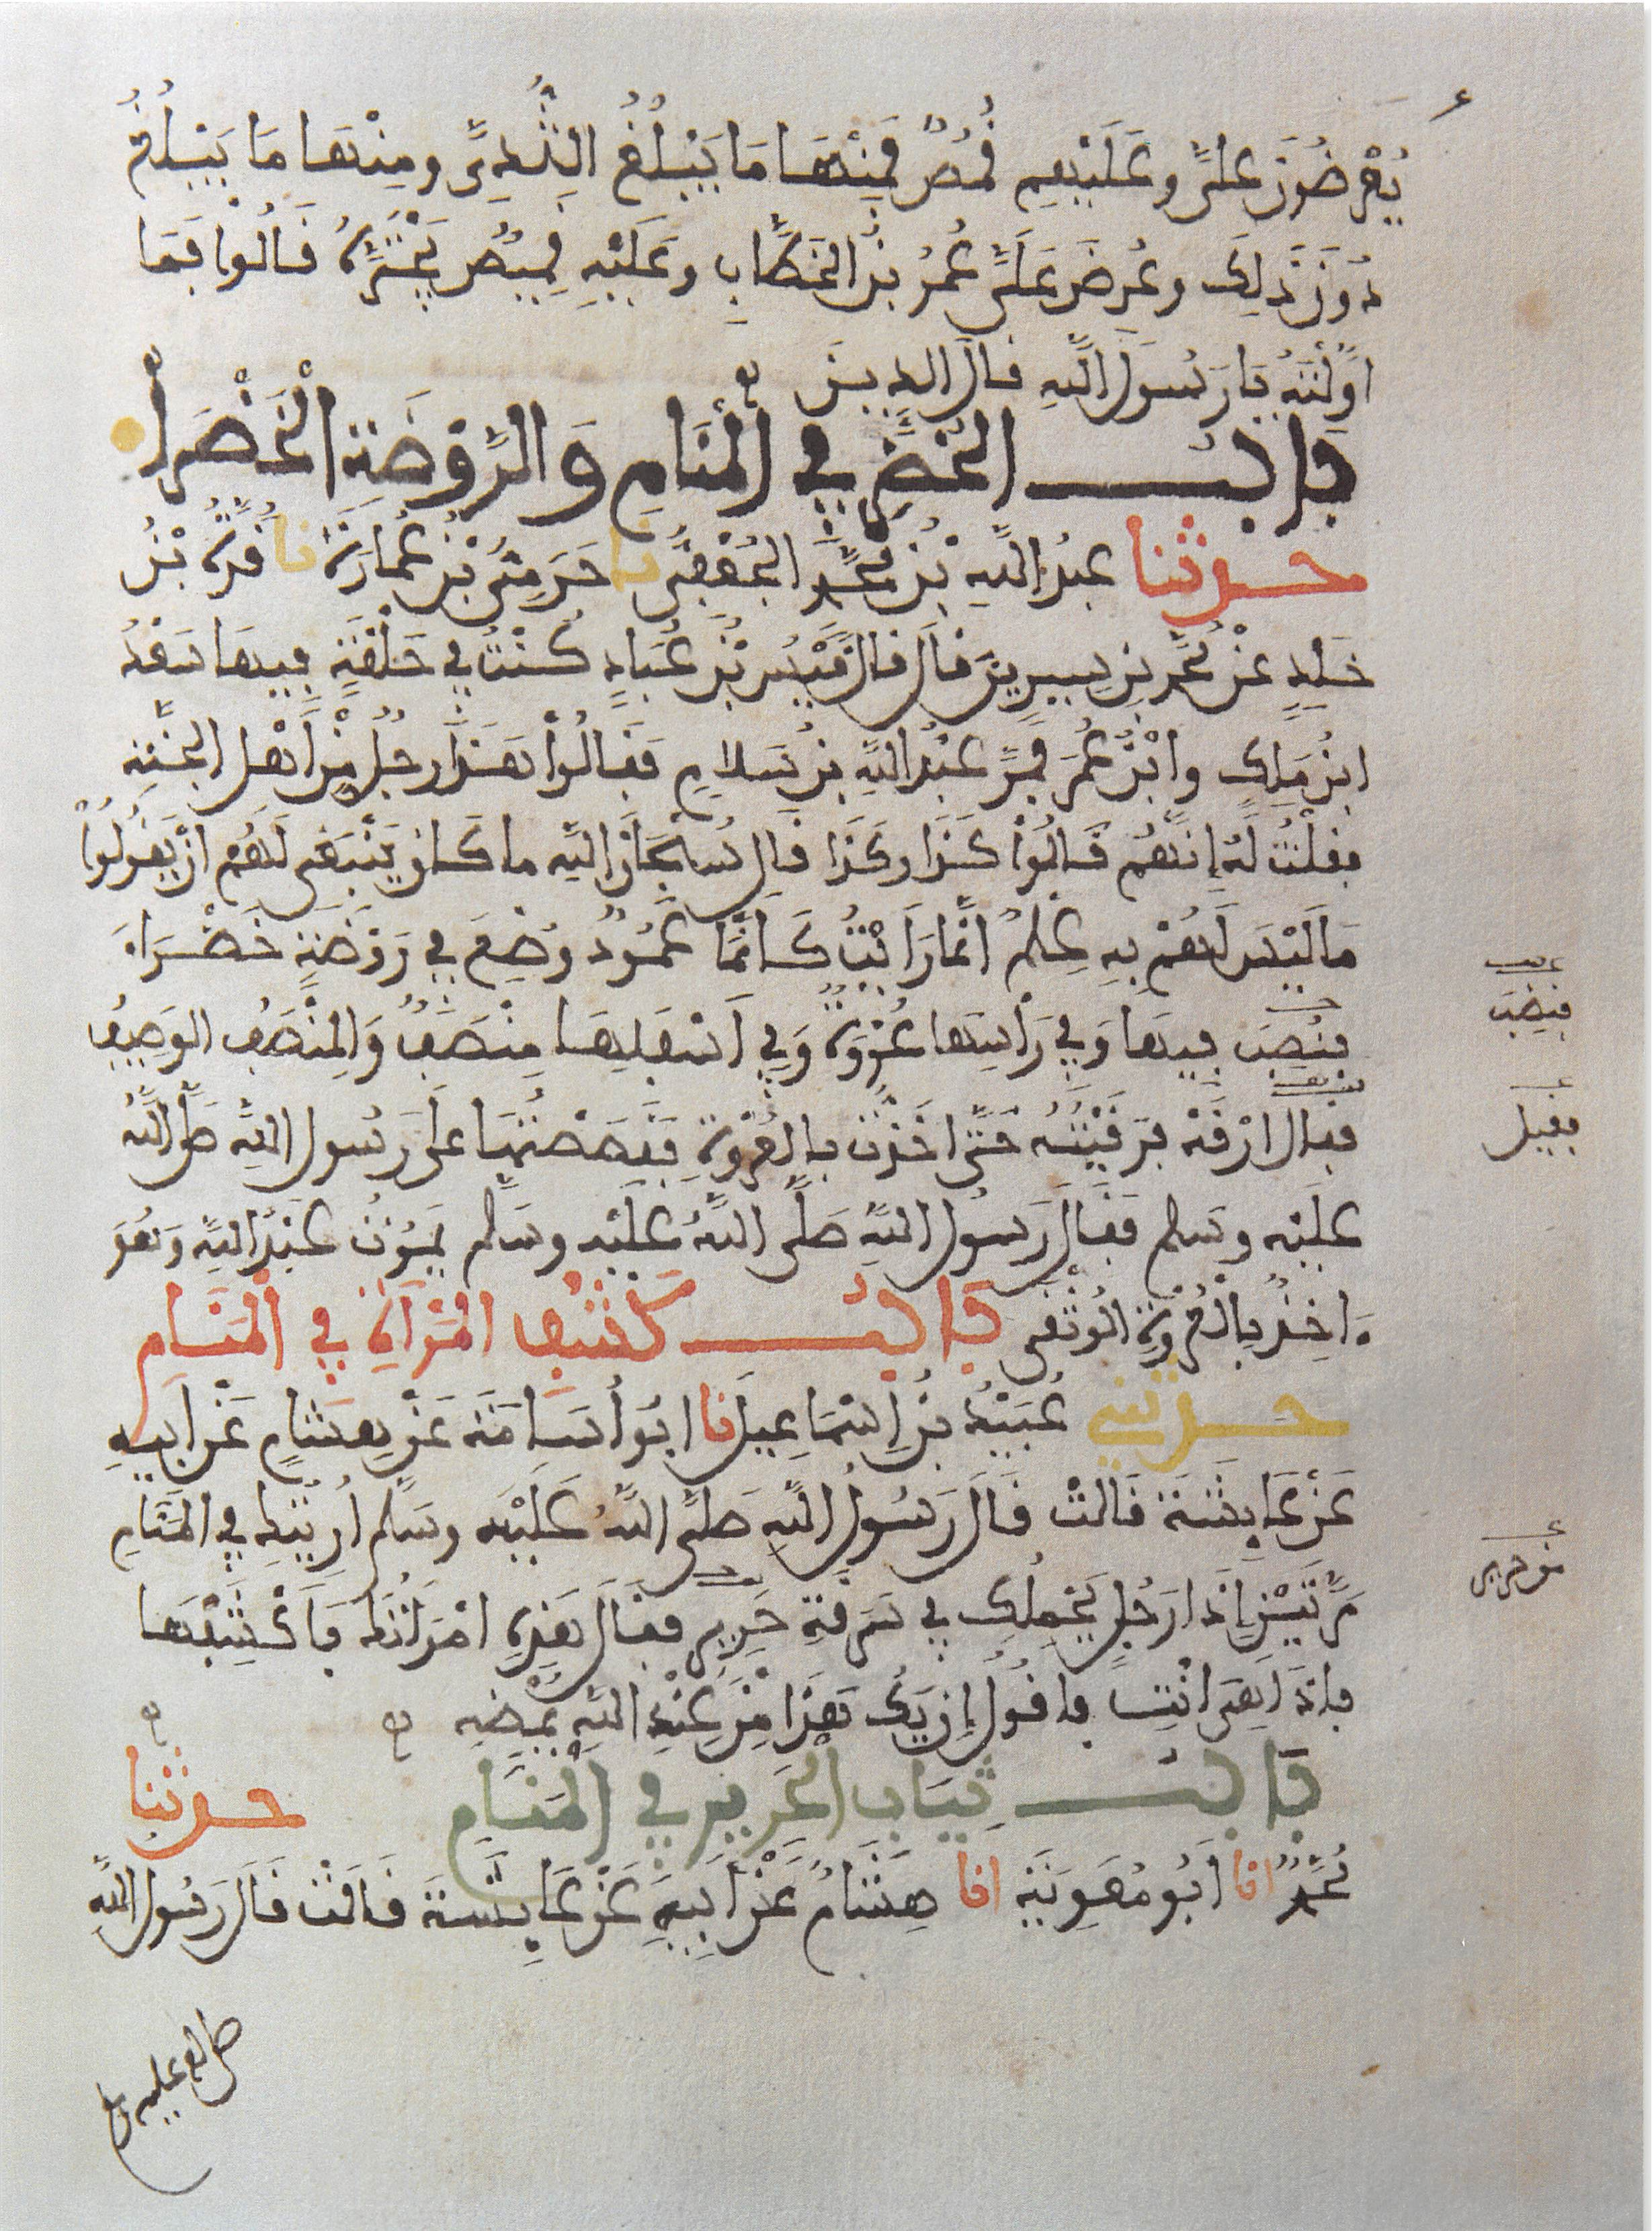 يُعْرَضُونَ عَلَىَّ وعَلَيْهِم قُمُصٌ فَمِنْهَا مَا يَبْلُغُ الثُّدِىَّ ومِنْهَا مَا يَبْلُغُ
دُونَ ذَلِكَ وعُرِضَ عَلَىَّ عُمَرُ بْنُ الخَطَّابِ وعَلَيْهِ قَمِيصٌ يَجْتَرُّهُ قَالُوا فَمَا
اوَّلْتَهُ يَا رَسُولَ اللَّهِ قال الدين
بابُ الخُضَرِ فِي الْمَنَامِ وَالرَّوْضَةِ الْخَضْرَاء
حدثنا عبدُ اللَّهِ بْنُ مُحَمَّدٍ الجُعْفِىُّ نا حَرَمِىُّ بْنُ عُمَارَةَ نا قُرَّةُ بْنُ
خَلِدٍ عَنْ مُحَمَّدِ بْنِ سِيرِينَ قَالَ قَالَ قَيْسُ بْنُ عُبَادٍ كُنْتُ فِي حَلْقَةٍ فِيهَا سَعْدُ
ابْنُ مَلِكٍ وابْنُ عُمَرَ فَمَرَّ عَبْدُ اللَّهِ بْنُ سَلَامٍ فَقَالُوا هَذَا رَجُلٌ مِنْ أَهْلِ الجَنَّةِ
فَقُلْتُ لَهُ إِنَّهُمْ قَالُوا كَذَا وكَذَا قَال سُبْحَانَ اللَّهِ ما كَانَ يَنْبَغِى لَهُمْ أَنْ يَقُولُوا
مَا لَيْسَ لَهُمْ بِهِ عِلْمٌ انَّمَا رَأَيْتُ كَأَنَّمَا عَمُودٌ وُضِعَ فِي رَوْضَةٍ خَضْرَاءَ
فنُصِبَ فِيهَا وَفِي رَأْسِهَا عُرْوَةٌ وَفِي أَسْفَلِهَا مِنْصَفٌ وَالمِنْصَفُ الوَصِيفُ
فقال ارْقَهْ فَرَقِيتُهُ حَتَّى اخَذْتُ بِالعُرْوَةِ فَقَصَصْتُهَا عَلَى رَسُولِ اللَّهِ صَلَّى اللَّهُ
عَلَيْهِ وسَلم فَقَالَ رَسُولُ اللَّهِ صَلَّى اللَّهُ عَلَيْهِ وسَلَّم يَمُوتُ عَبْدُ اللَّهِ وَهُوَ
ءَاخِذٌ بِالْعُرْوَةِ الْوُثْقَى بابُ كَشْفِ المَرْأَةِ فِي الْمَنَامِ
حدثني عُبَيْدُ بْنُ إِسْمَاعِيلَ نا ابُو أُسَامَةَ عَنْ هِشَامٍ عَنْ ابيهِ
عَنْ عَايِشَةَ قَالتْ قَالَ رَسُولُ اللَّهِ صَلَّى اللَّهُ عَلَيْهِ وسَلَّم أُرِيتُكِ فِي المَنَامِ
مَرَّتَيْنِ إِذَا رَجُلٌ يَحْمِلُكِ فِي سَرَقَةِ حَرِيرٍ فَقَالَ هَذِهِ امْرَأَتُكَ فَأَكْشِفُهَا
فإِذَا هِىَ أَنْتِ فاقُولُ إِنْ يَكُ هَذَا مِنْ عِنْدِ اللَّهِ يُمْضِهِ
بابُ ثِيَابِ الحَرِيرِ فِي الْمَنَامِ حدثنا
مُحَمَّدٌ انا أَبُو مُعَوِيَةَ انا هِشَامٌ عَنْ أَبِيهِ عَنْ عَايِشَةَ قَالَتْ قَالَ رَسُولُ اللَّهِ
فنُصِبَ
فقيل
من حرير
صلى الله عليه وسلم